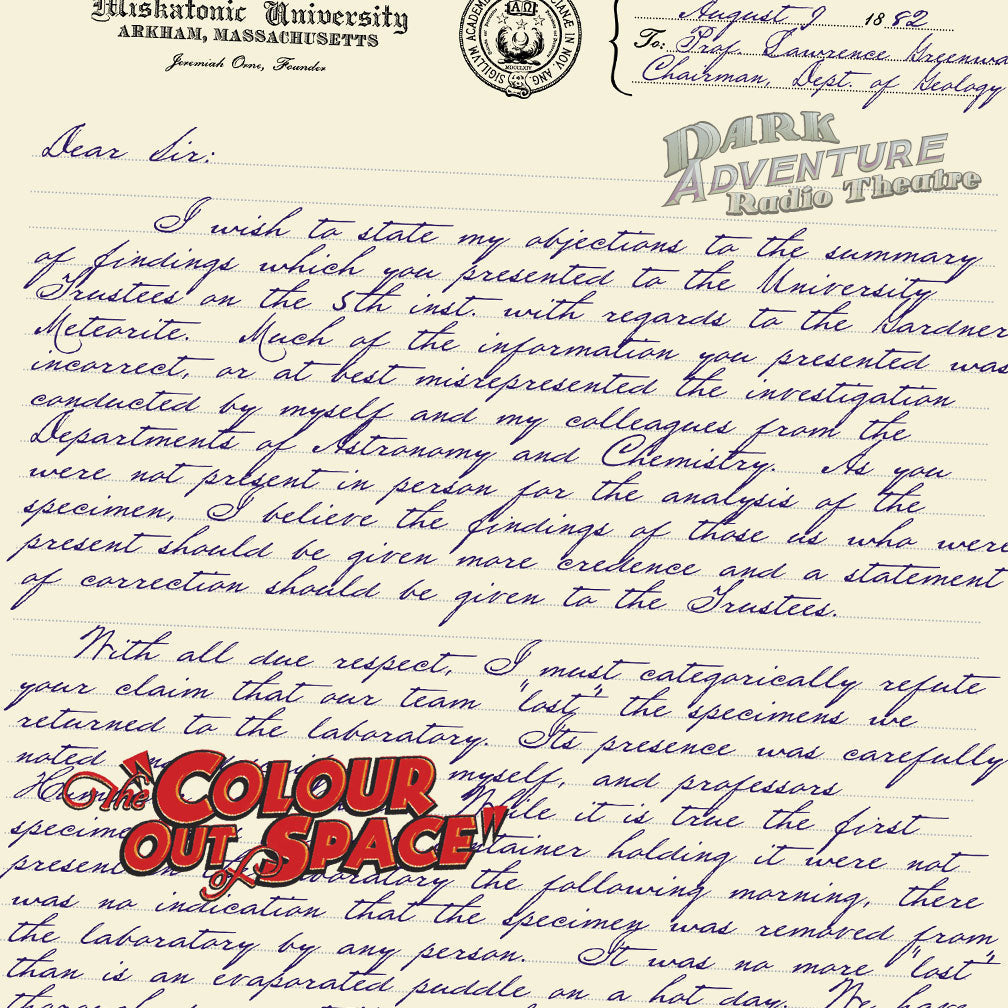 Miskatonic University
ARKHAM, MASSACHUSETTS
Jeremiah Orne, Founder
ΑΩ
MDCCLXIV
August 9 1882
To: Prof. Lawrence Greenwo
Chairman, Dept. of Geology
DARK
ADVENTURE
Radio Theatre
Dear Sir:
I wish to state my objections to the summary
of findings which you presented to the University
Trustees on the 5th inst. with regards to the Gardner
Meteorite. Much of the information you presented was
incorrect, or at best misrepresented the investigation
conducted by myself and my colleagues from the
Departments of Astronomy and Chemistry. As you
were not present in person for the analysis of the
specimen, I believe the findings of those us who were
present should be given more credence and a statement
of correction should be given to the Trustees.
With all due respect, I must categorically refute
your claim that our team "lost" the specimens we
returned to the laboratory. Its presence was carefully
noted myself, and professors
While it is true the first
specime container holding it were not
present in the laboratory the following morning, there
was no indication that the specimen was removed from
the laboratory by any person. It was no more "lost"
than is an evaporated puddle on a hot day. We have
"The COLOUR
OUT of SPACE"